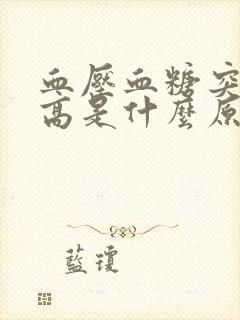 血壓血糖突
高是什麼原
藍瓊